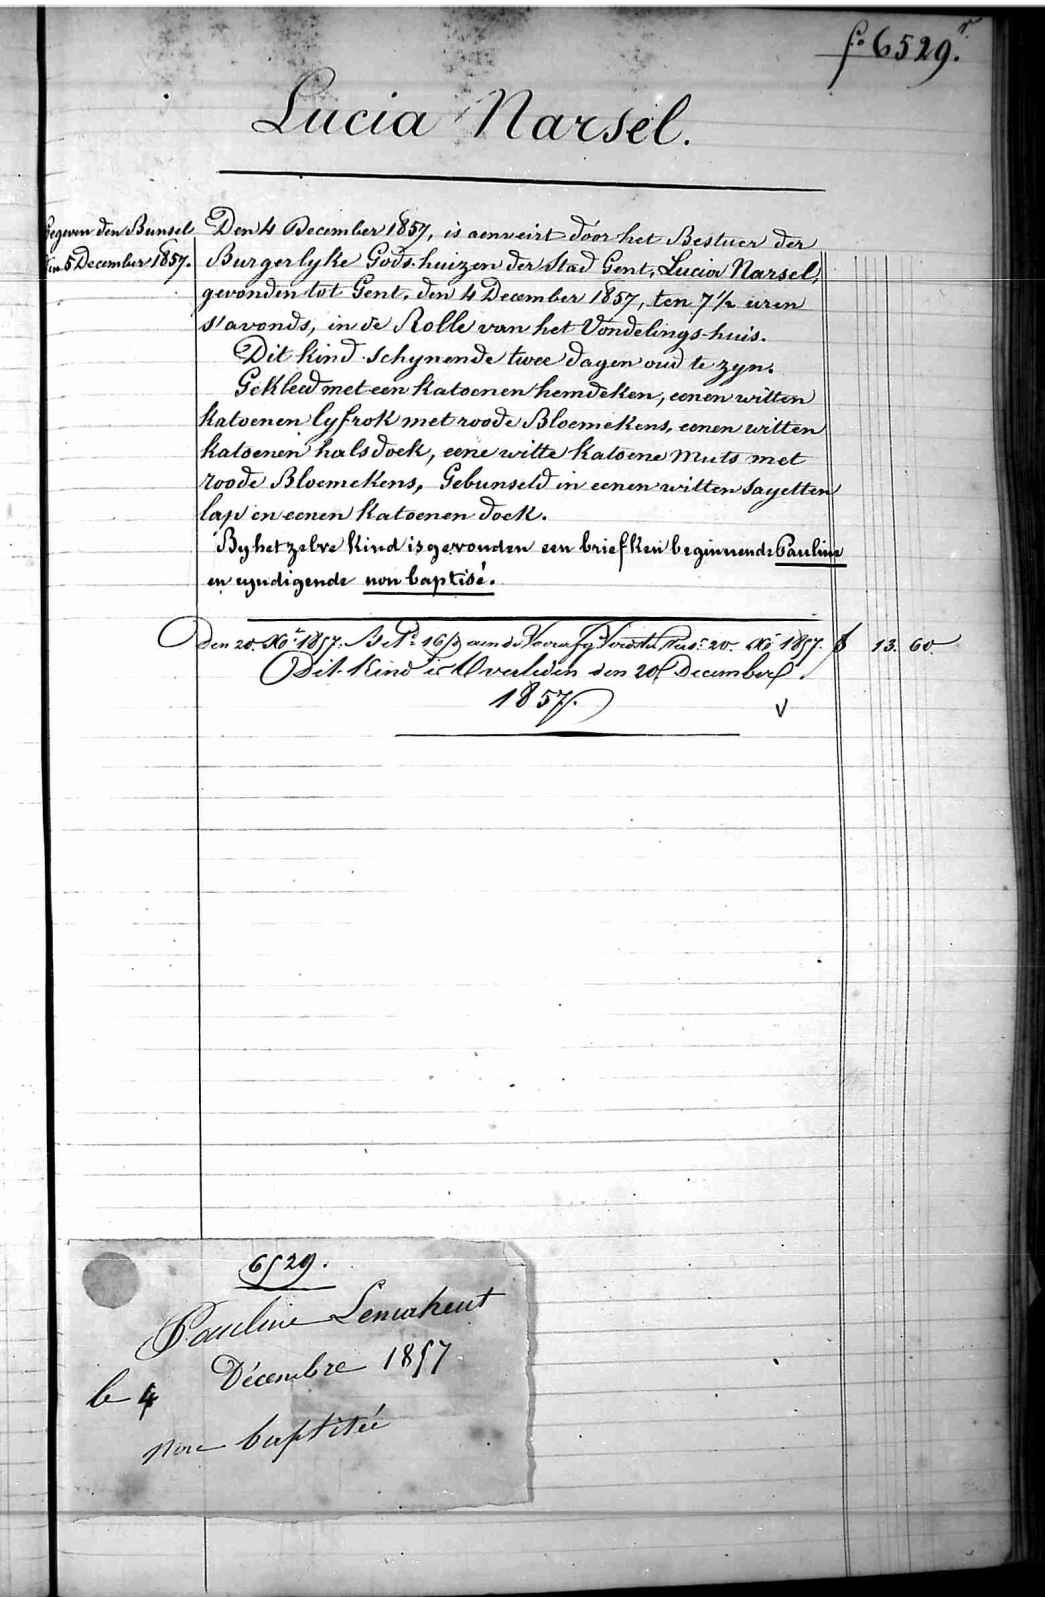 fo 6529.r
Lucia Narsel.
gegeven den Bunsel
den 5 December 1857.
Den 4 December 1857, is aenveirt door het Bestuer der
Burgerlyke Gods-huizen der Stad Gent, Lucia Narsel,
gevonden tot Gent, den 4 December 1857, ten 7 1/2 uren
s'avonds, in de Rolle van het Vondelings-huis.
Dit kind schynende twee dagen oud te zyn.
Gekleed met een katoenen hemdeken, eenen witten
katoenen lyfrok met roode Bloemekens, eenen witten
katoenen halsdoek, eene witte katoene muts met
roode Bloemekens, Gebunseld in eenen witten Sayetten
lap en eenen katoenen doek.
By het zelve kind is gevonden een briefken beginnende Pauline
en eyndigende non baptisé.
Den 20 Xbr 1857. 16 aen de 20 Xbr 1857. f 13. 60
Dit kind is Overleden den 20 December
1857.
6529.
Pauline
le 4 Décembre 1857
non baptisée